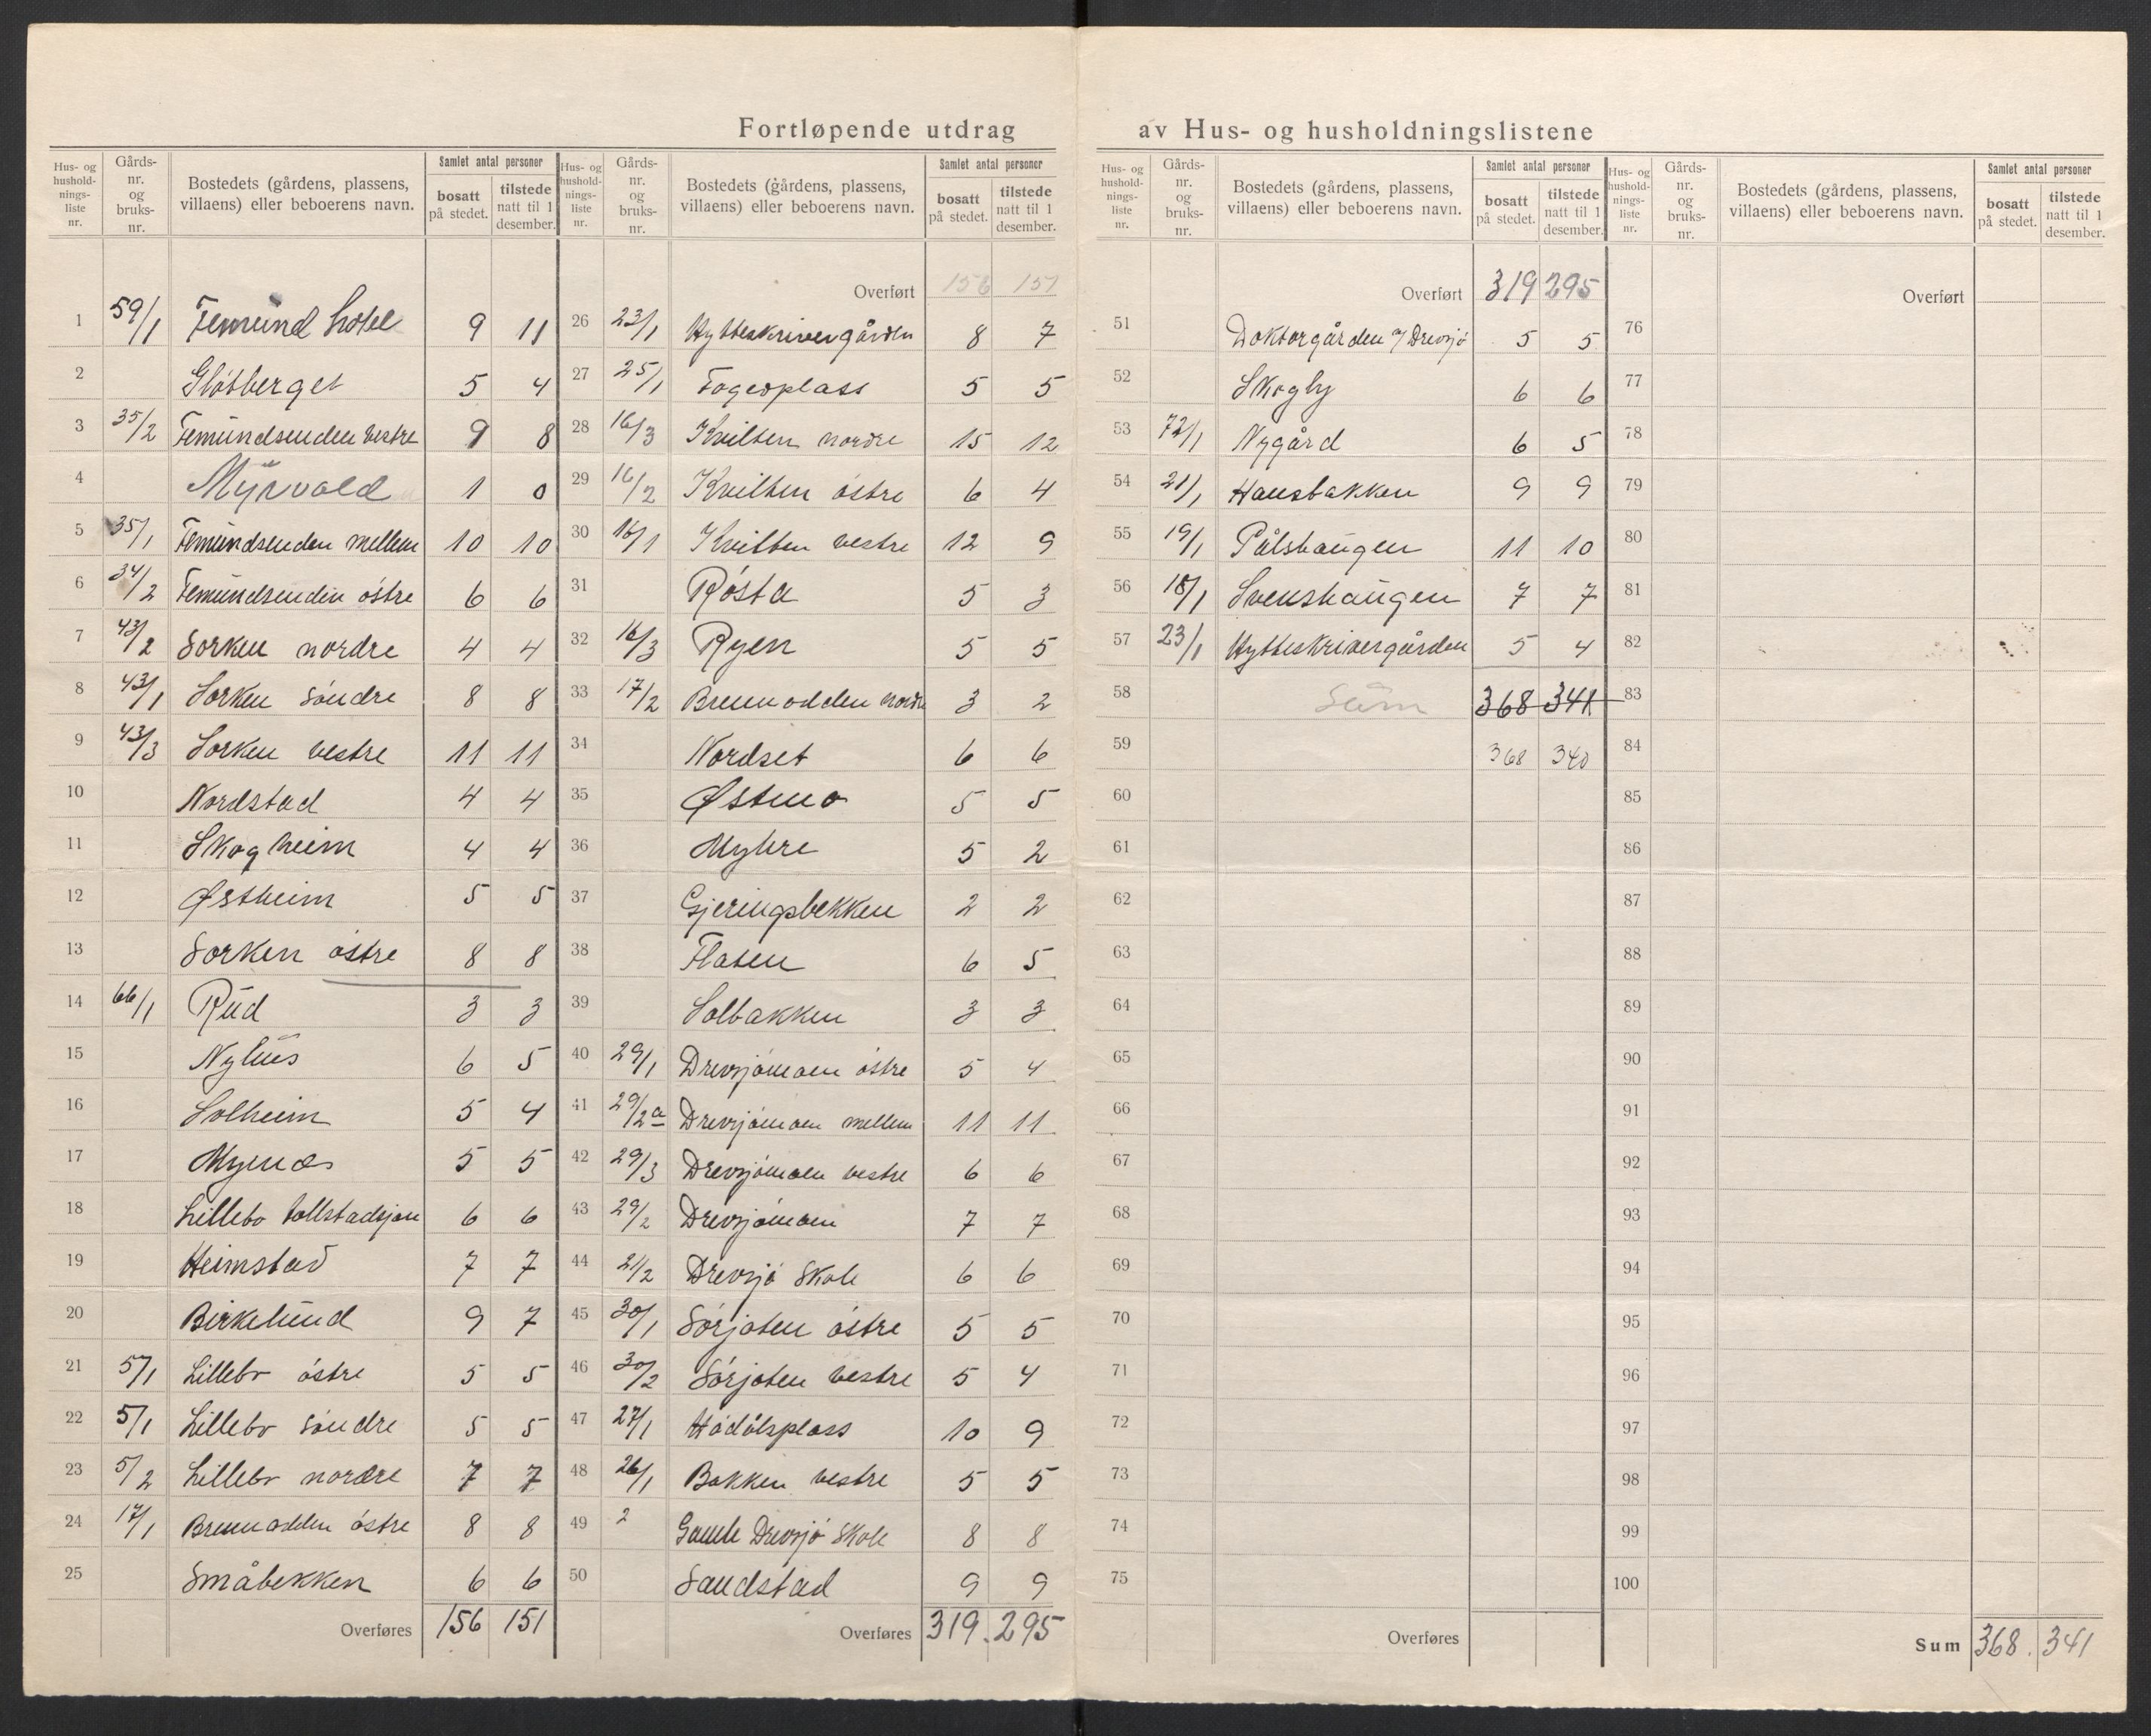 Fortløpende utdrag av Hus- og husholdningslistene
Hus- og hushold-nings-liste nr. | Gårds-nr. og bruks-nr. | Bostedets (gårdens, plassens, villaens) eller beboerens navn. | Samlet antal personer | bosatt på stedet. | tilstede natt til 1 desember.
1 59/1 Femund hotel 9 11
2 Gløtberget 5 4
3 35/2 Femundsenden vestre 9 8
4 Myrvold 1 0
5 35/1 Femundsenden mellem 10 10
6 34/2 Femundsenden østre 6 6
7 43/2 Sorken nordre 4 4
8 43/1 Sorken søndre 8 8
9 43/3 Sorken vestre 11 11
10 Nordstad 4 4
11 Skogheim 4 4
12 Østheim 5 5
13 Sorken østre 8 8
14 66/1 Rud 3 3
15 Nyhus 6 5
16 Solheim 5 4
17 5 5
18 Lillebo 6 6
19 Heimstad 7 7
20 Birkelund 9 7
21 5/1 Lillebo østre 5 5
22 5/1 Lillebo søndre 5 5
23 5/2 Lillebo nordre 7 7
24 17/1 Brennodden østre 8 8
25 Småbekken 6 6
Overføres 156 151
Hus- og hushold-nings-liste nr. | Gårds-nr. og bruks-nr. | Bostedets (gårdens, plassens, villaens) eller beboerens navn. | Samlet antal personer | bosatt på stedet. | tilstede natt til 1 desember.
Overført 156 151
26 23/1 Hytteskrivergården 8 7
27 25/1 Fogedplass 5 5
28 16/3 Kvilten nordre 15 12
29 16/2 Kvilten østre 6 4
30 16/1 Kvilten vestre 12 9
31 Røsta 5 3
32 16/3 Ryen 5 5
33 17/2 Brennodden nordre 3 2
34 Nordset 6 6
35 Østmo 5 5
36 Myhre 5 2
37 Gjeringsbekken 2 2
38 Flaten 6 5
39 Solbakken 3 3
40 29/1 Drevsjømoen østre 5 4
41 29/2a Drevsjømoen mellem 11 11
42 29/3 Drevsjømoen vestre 6 6
43 29/2 Drevsjømoen 7 7
44 21/2 Drevsjø Skole 6 6
45 30/1 Sørjoten østre 5 5
46 30/2 Sørjoten vestre 5 4
47 27/1 Hådålsplass 10 9
48 26/1 Bakken vestre 5 5
49 2 Gamle Drevsjø Skole 8 8
50 Sandstad 9 9
Overføres 319 295
Hus- og hushold-nings-liste nr. | Gårds-nr. og bruks-nr. | Bostedets (gårdens, plassens, villaens) eller beboerens navn. | Samlet antal personer | bosatt på stedet. | tilstede natt til 1 desember.
Overført 319 295
51 Doktorgården Drevsjø 5 5
52 Skogly 6 6
53 72/1 Nygård 6 5
54 21/1 Hansbakken 9 9
55 19/1 Pålshaugen 11 10
56 18/1 Svenshaugen 7 7
57 23/1 Hytteskrivergården 5 4
58 Sum 368 341
59 368 340
60
61
62
63
64
65
66
67
68
69
70
71
72
73
74
75
Overføres
Hus- og hushold-nings-liste nr. | Gårds-nr. og bruks-nr. | Bostedets (gårdens, plassens, villaens) eller beboerens navn. | Samlet antal personer | bosatt på stedet. | tilstede natt til 1 desember.
Overført
76
77
78
79
80
81
82
83
84
85
86
87
88
89
90
91
92
93
94
95
96
97
98
99
100
Sum 368 341